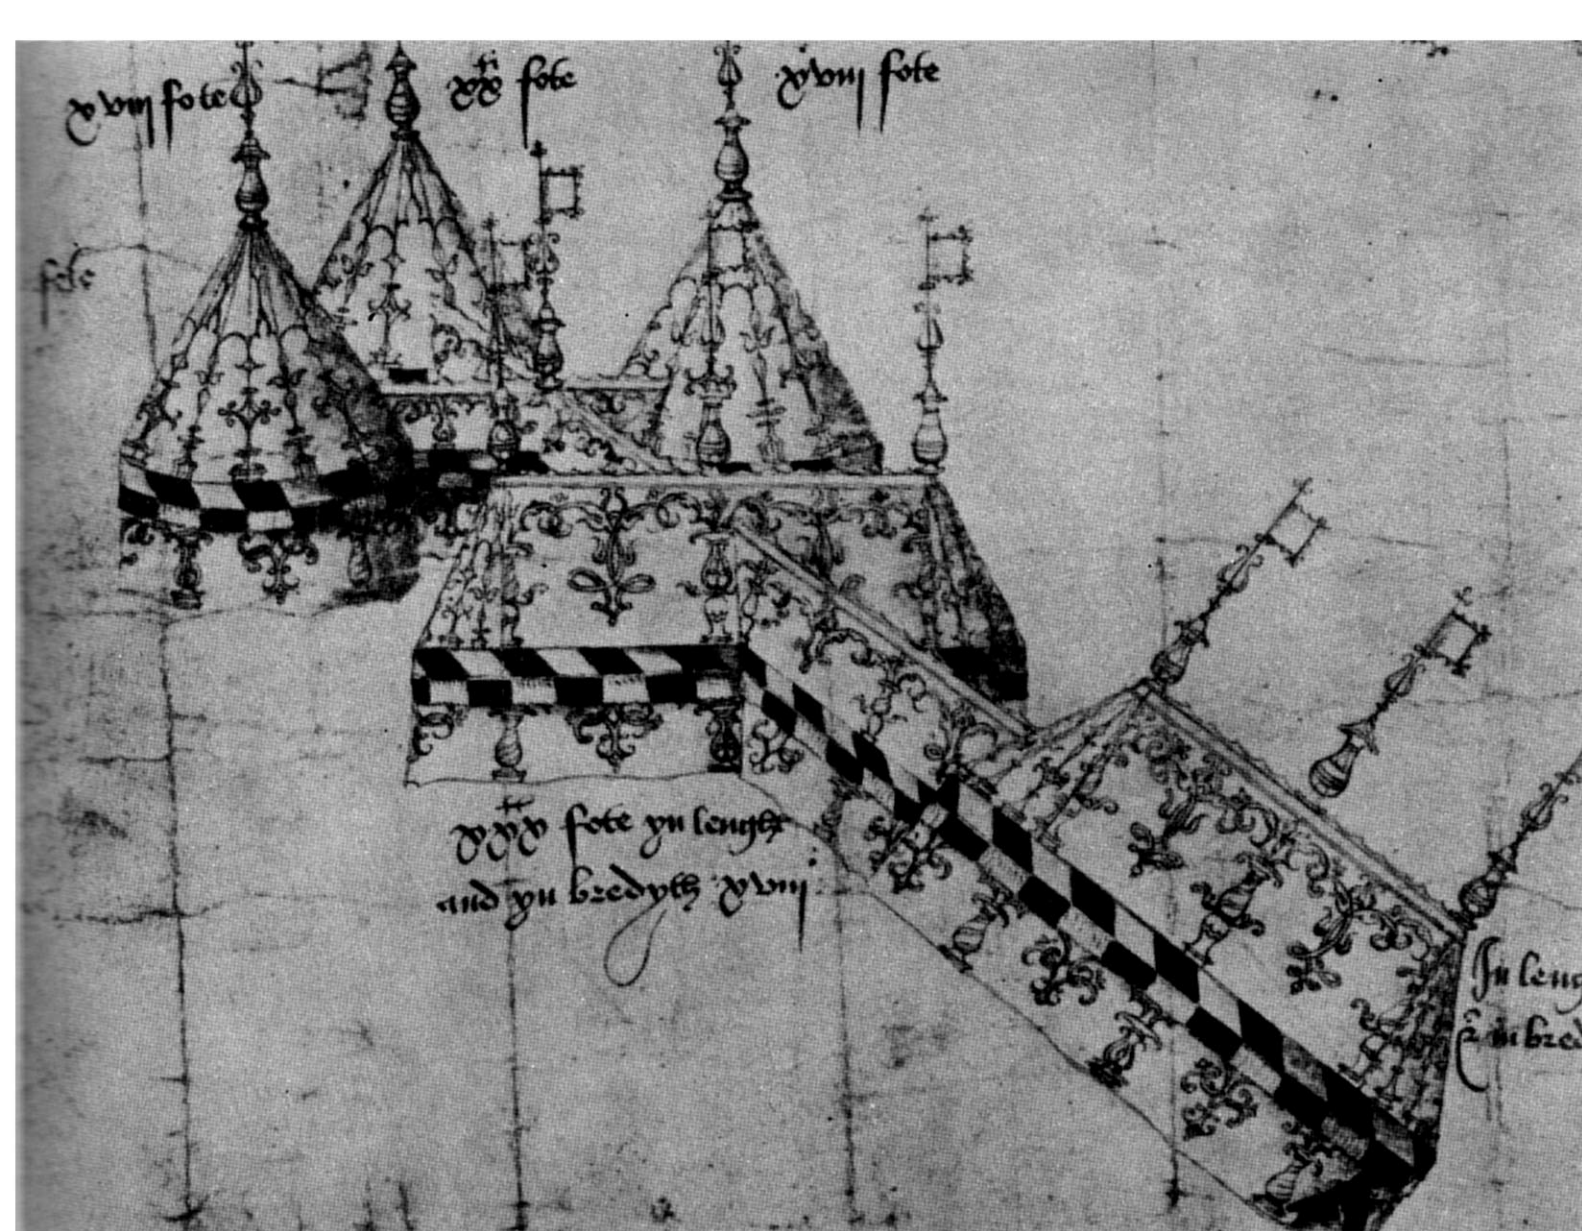 xviij fote
xx fote
xviij fote
fote
xxx fote yn lengh
and yn bredyth xviij
In leng
& in bred